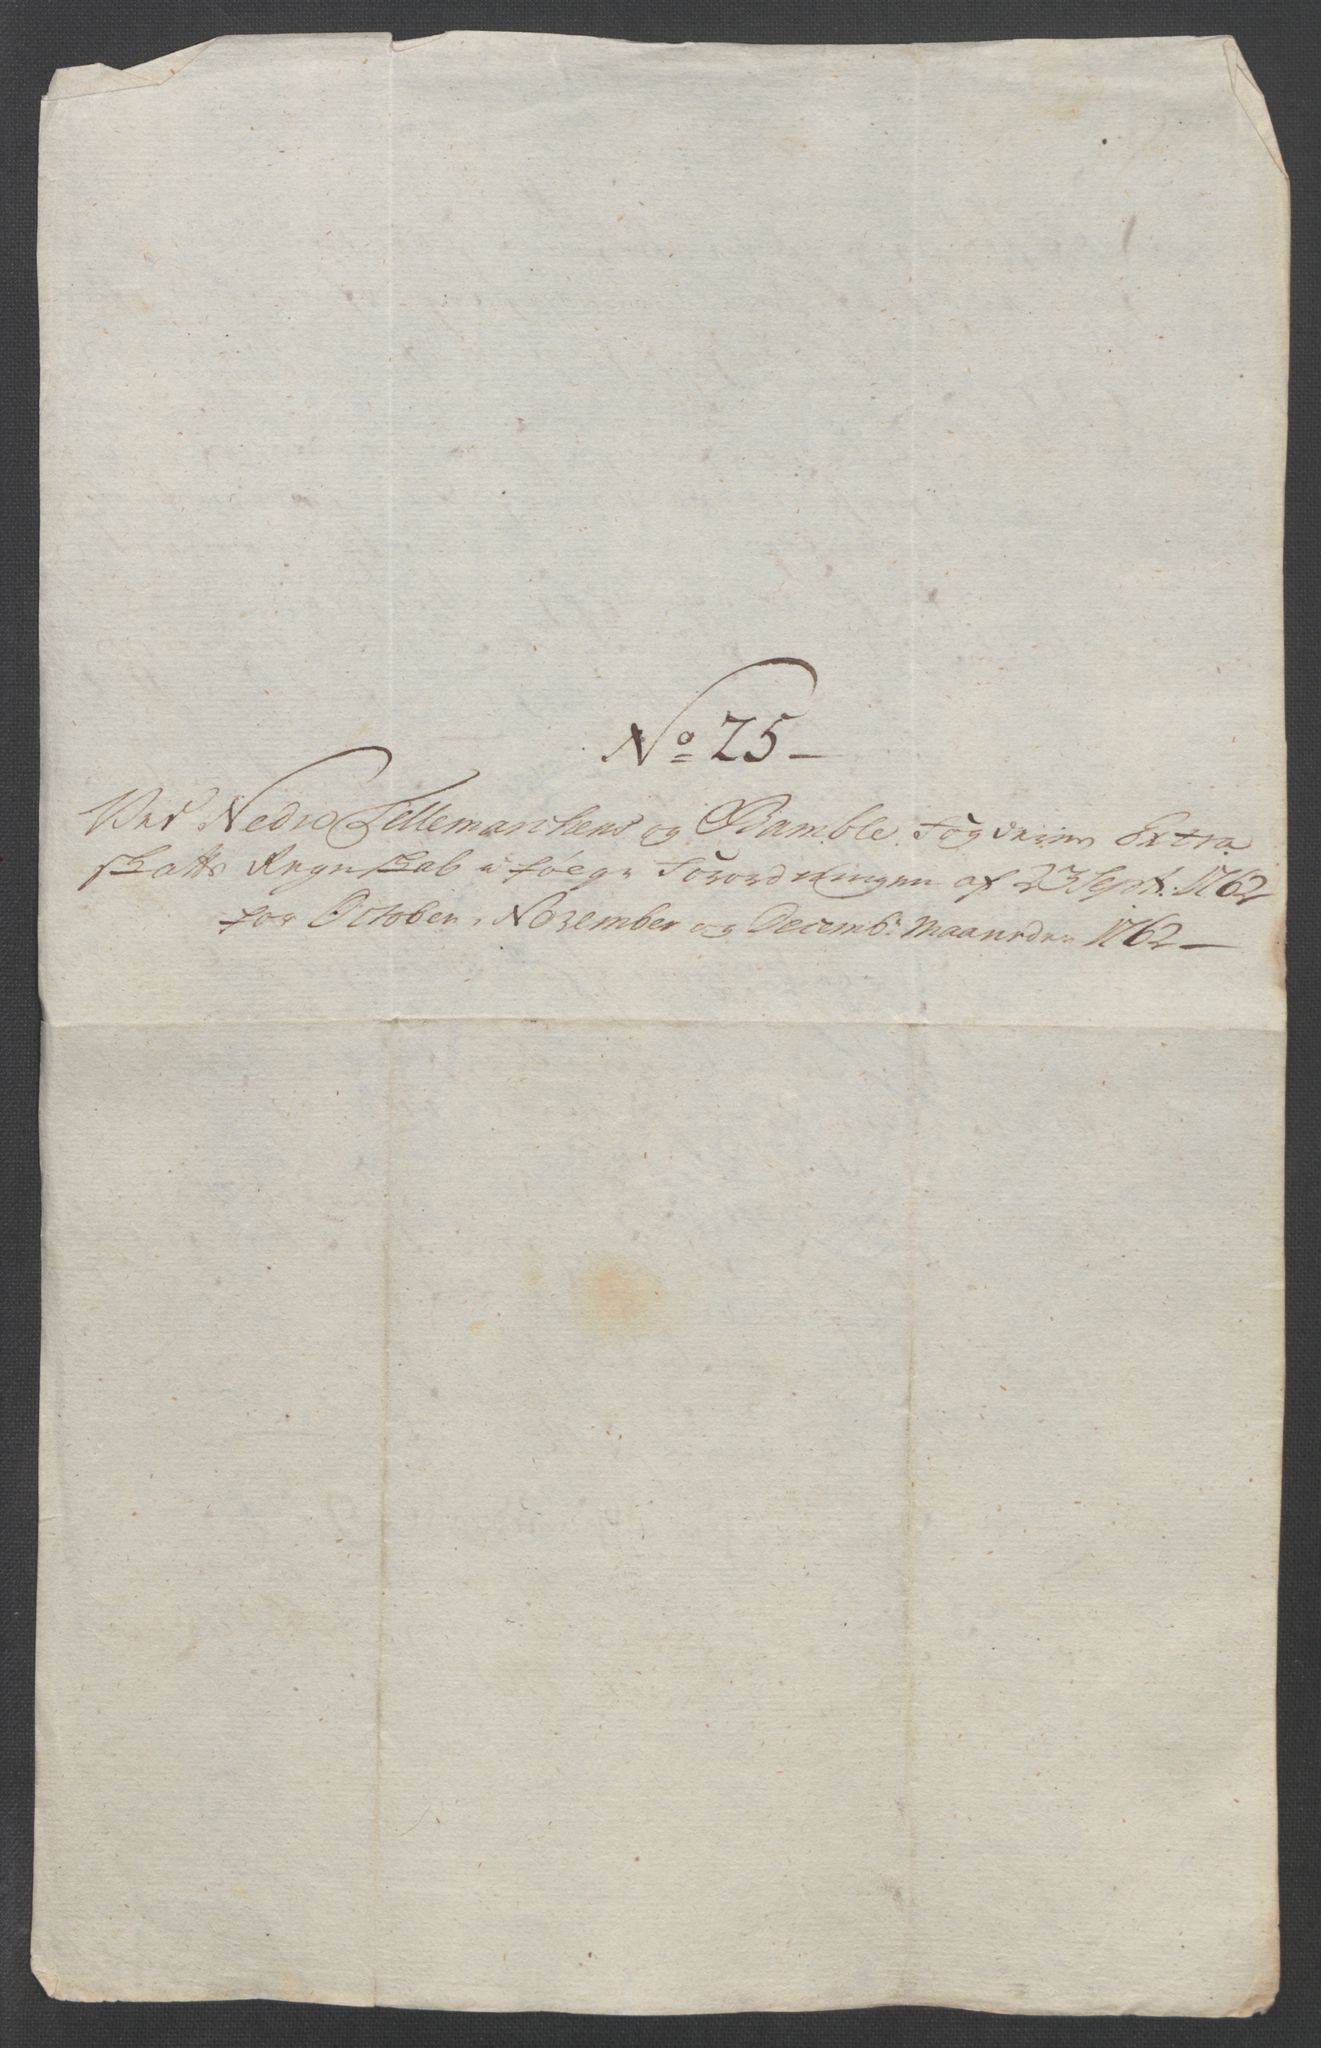 No 25
Ved Nedre Tellemarchens og Bamble Fogderies Extra
skatts Regnskab i føege Forordningen af 23 Sept. 1762
for October, November og Decembr. Maaneder 1762